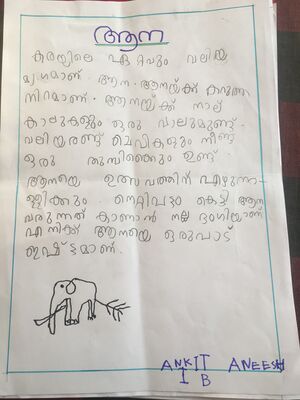 ആന
കരയിലെ ഏറ്റവും വലിയ
മൃഗമാണ് ആന. ആനയ്ക്ക് കറുത്ത
നിറമാണ്. ആനയ്ക്ക് നാല്
കാലുകളും ഒരു വാലുമുണ്ട്.
വലിയരണ്ട് ചെവികളും നീണ്ട
ഒരു തുമ്പിക്കൈും ഉണ്ട്
ആനയെ ഉത്സവത്തിന് എഴുന്ന-
ള്ളിക്കും. നെറ്റിപട്ടം കെട്ടി ആന
വരുന്നത് കാണാൻ നല്ല ഭംഗിയാണ്
എനിക്ക് ആനയെ ഒരുപാട്
ഇഷ്ട്ടമാണ്.
ANKIT ANEESH
I B